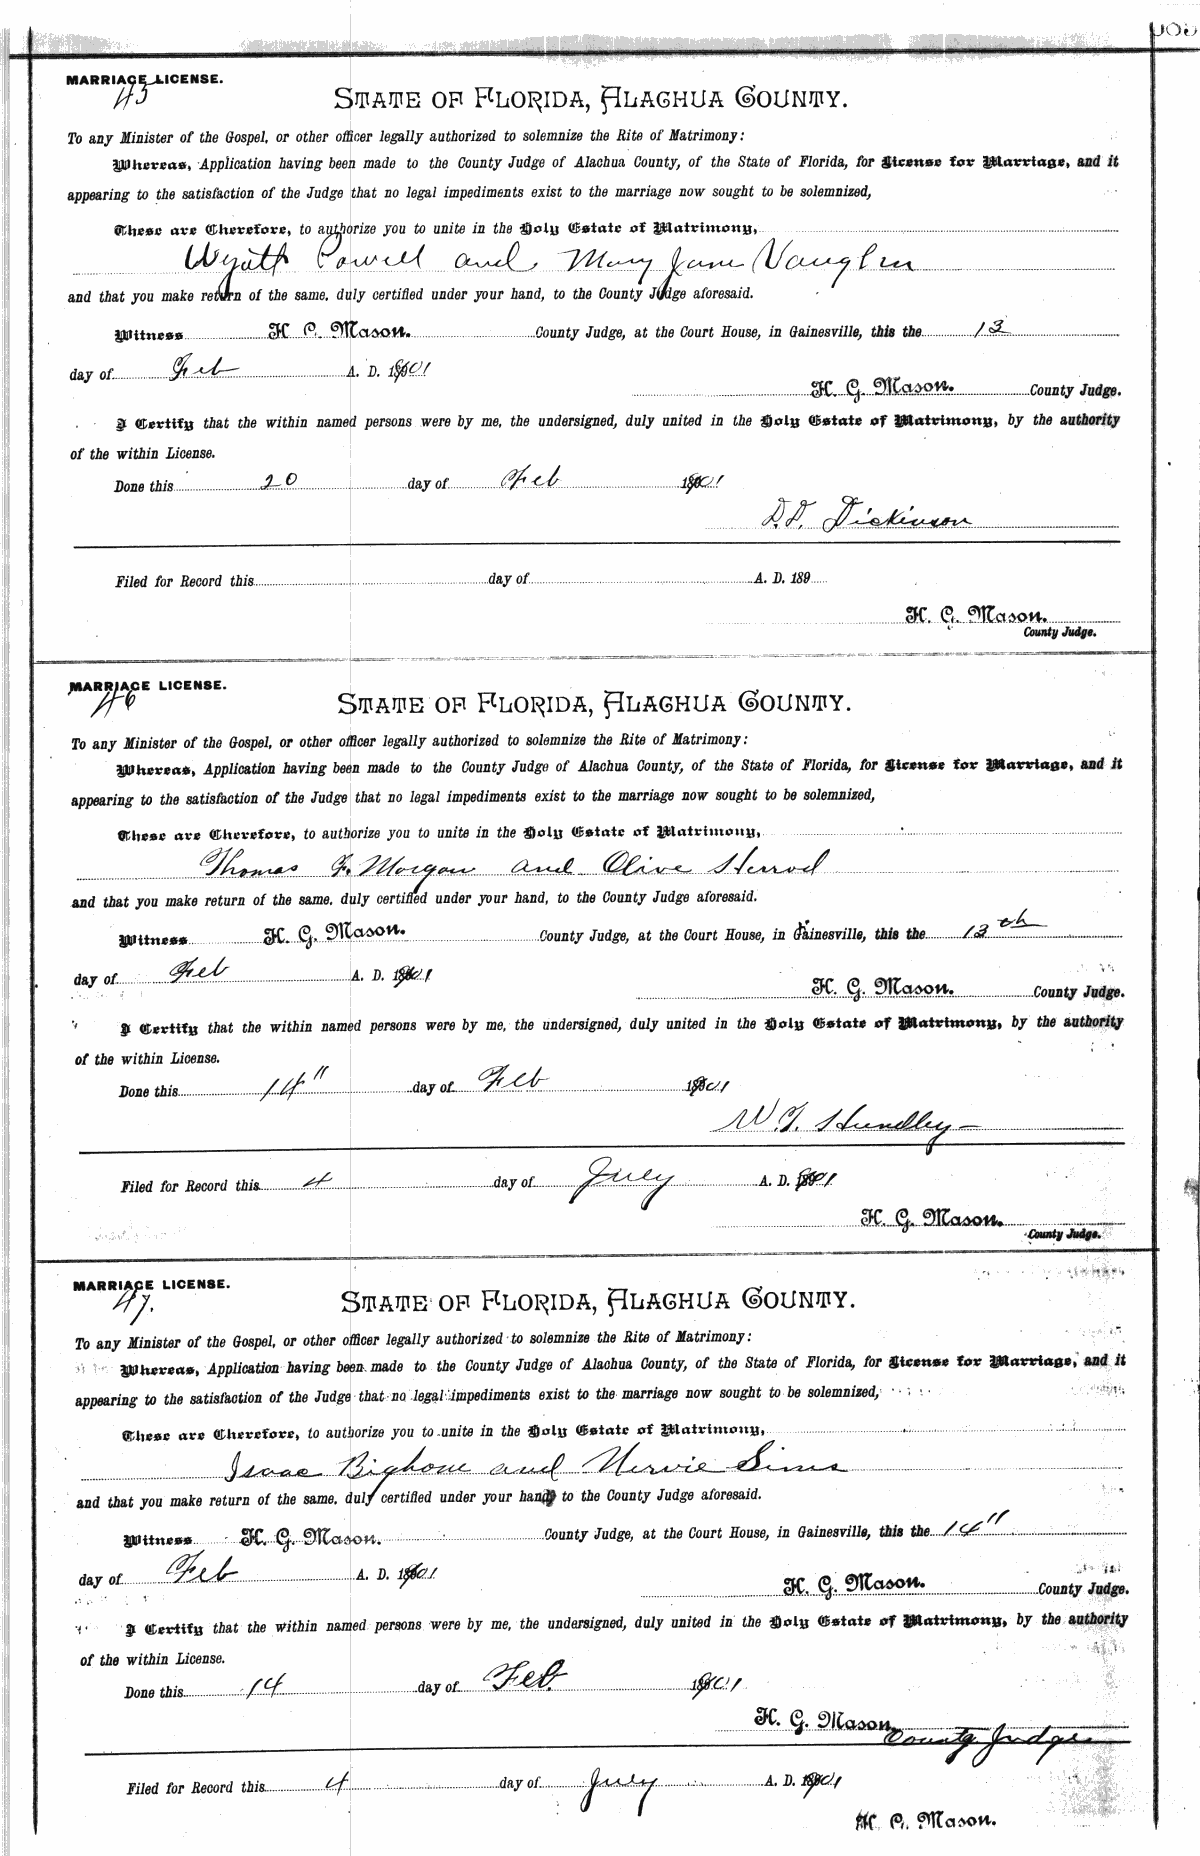 MARRIAGE LICENSE.
45
STATE OF FLORIDA, ALACHUA COUNTY.
To any Minister of the Gospel, or other officer legally authorized to solemnize the Rite of Matrimony:
Whereas, Application having been made to the County Judge of Alachua County, of the State of Florida, for License for Marriage, and it
appearing to the satisfaction of the Judge that no legal impediments exist to the marriage now sought to be solemnized,
These are Therefore, to authorize you to unite in the Holy Estate of Matrimony,
Wyatt Powell and Mary Jane Vaughn
and that you make return of the same, duly certified under your hand, to the County Judge aforesaid.
Witness H. G. Mason. County Judge, at the Court House, in Gainesville, this the 13
day of Feb A. D. 1901
H. G. Mason. County Judge.
I Certify that the within named persons were by me, the undersigned, duly united in the Holy Estate of Matrimony, by the authority
of the within License.
Done this 20 day of Feb 1901
D.D. Dickinson
Filed for Record this day of A. D. 189
H. G. Mason.
County Judge.
MARRIAGE LICENSE.
46
STATE OF FLORIDA, ALACHUA COUNTY.
To any Minister of the Gospel, or other officer legally authorized to solemnize the Rite of Matrimony:
Whereas, Application having been made to the County Judge of Alachua County, of the State of Florida, for License for Marriage, and it
appearing to the satisfaction of the Judge that no legal impediments exist to the marriage now sought to be solemnized,
These are Therefore, to authorize you to unite in the Holy Estate of Matrimony,
Thomas F. Morgan and Olive Herrod
and that you make return of the same, duly certified under your hand, to the County Judge aforesaid.
Witness H. G. Mason. County Judge, at the Court House, in Gainesville, this the 13th
day of Feb A. D. 1901
H. G. Mason. County Judge.
I Certify that the within named persons were by me, the undersigned, duly united in the Holy Estate of Matrimony, by the authority
of the within License.
Done this 14" day of Feb 1901
W. T. Hundley
Filed for Record this 4 day of July A. D. 1901
H. G. Mason.
County Judge.
MARRIAGE LICENSE.
47.
STATE OF FLORIDA, ALACHUA COUNTY.
To any Minister of the Gospel, or other officer legally authorized to solemnize the Rite of Matrimony:
Whereas, Application having been made to the County Judge of Alachua County, of the State of Florida, for License for Marriage, and it
appearing to the satisfaction of the Judge that no legal impediments exist to the marriage now sought to be solemnized,
These are Therefore, to authorize you to unite in the Holy Estate of Matrimony,
Isaac Bighome and Nervie Sims
and that you make return of the same, duly certified under your hand, to the County Judge aforesaid.
Witness H. G. Mason. County Judge, at the Court House, in Gainesville, this the 14"
day of Feb A. D. 1901
H. G. Mason. County Judge.
I Certify that the within named persons were by me, the undersigned, duly united in the Holy Estate of Matrimony, by the authority
of the within License.
Done this 14 day of Feb. 1901
H. G. Mason. County Judge
Filed for Record this 4 day of July A. D. 1901
H. G. Mason.